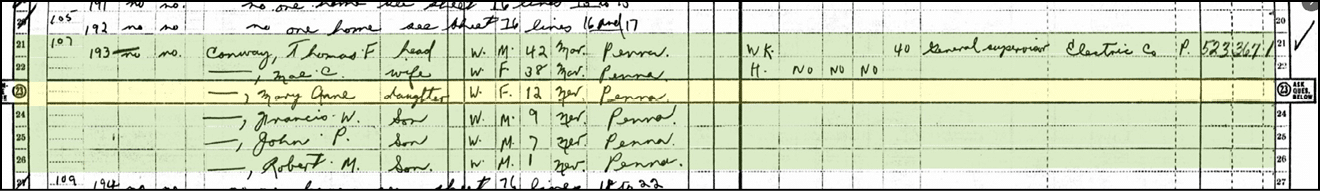 191 no no. no one home see sheet 76 lines
20 105 192 no no no one home see sheet 76 lines 16 and 17 20
21 107 193 no no. Conway, Thomas F head W. M. 42 Mar. Penna. WK. 40 General supervisor Electric Co P. 523 367 1 21
22 ——, Mae C. wife W F. 38 Mar. Penna H. No No No 22
23 ——, Mary Anne daughter W F. 12 Nev. Penna. 23 ASK QUES. BELOW
24 ——, Francis W. Son W. M. 9 Nev. Penna. 24
25 ——, John P. Son W. M. 7 Nev. Penna. 25
26 ——, Robert M. Son. W. M. 1 Nev. Penna. 26
109 194 no sheet 76 lines 18 to 22 27